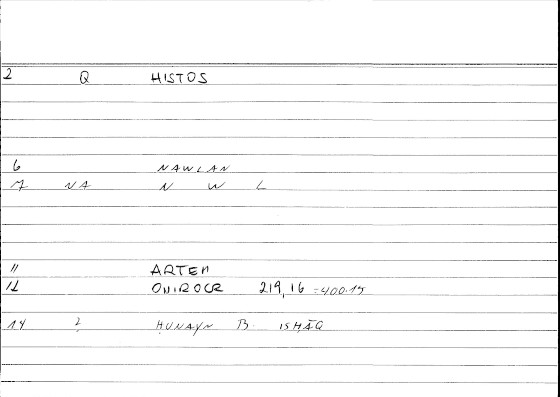 2 Q HISTOS
6 NAWLAN
7 NA N W L
11 ARTEM
12 ONIROCR 219,16 = 400.15
14 2 ḤUNAYN B. ISḤĀQ